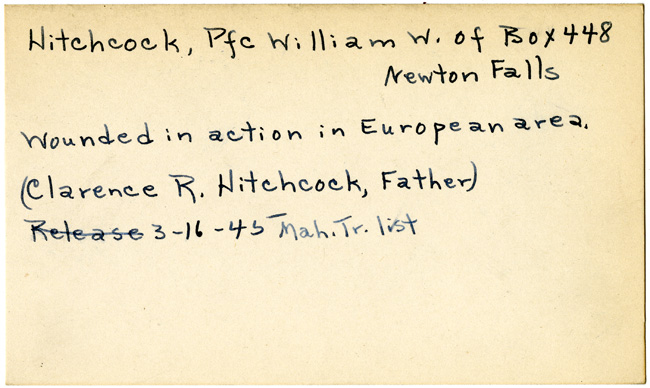 Hitchcock, Pfc William W. of Box 448
Newton Falls
Wounded in action in European area.
(Clarence R. Hitchcock, Father)
Release 3-16-45 Mah. Tr. list